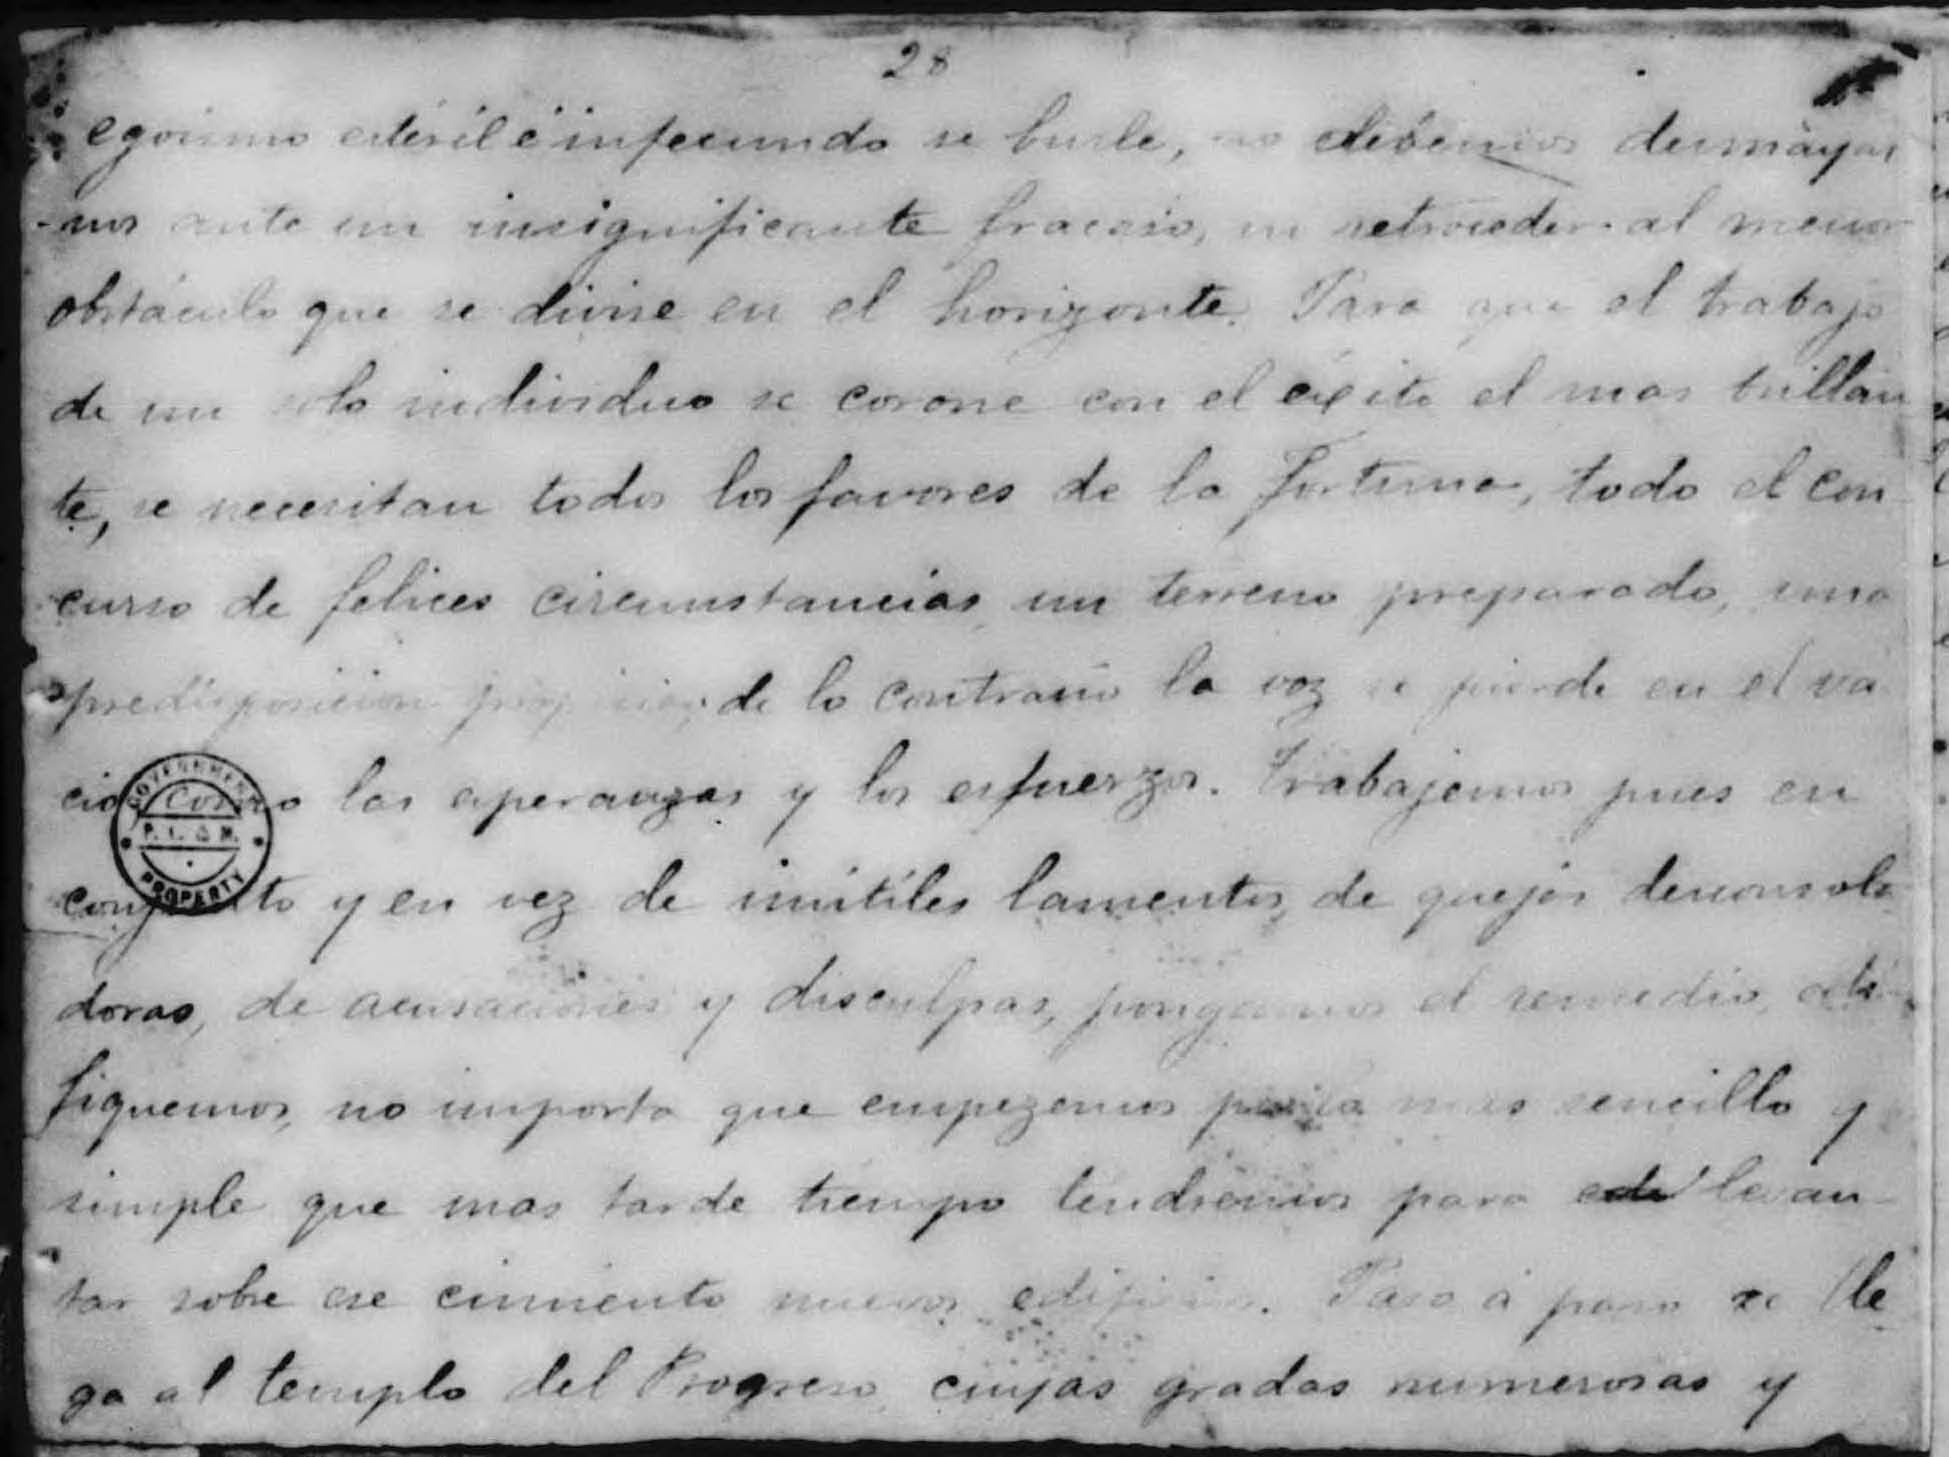 28
egoismo estéril é infecundo se burle, no debemos desmayar
-nos ante un insignificante fracaso, ni retroceder al menor
obstáculo que se divise en el horizonte. Para que el trabajo
de un solo individuo se corone con el éxito el mas brillan
te, se necesitan todos los favores de la fortuna, todo el con
curso de felices circunstancias, un terreno preparado, una
predisposicion propicia; de lo contrario la voz se pierde en el va
cio como las esperanzas y los esfuerzos. Trabajemos pues en
conjunto y en vez de inútiles lamentos, de quejas desconsola
doras, de acusaciones y disculpas, pongamos el remedio, edi
fiquemos, no importa que empezemos por lo mas sencillo y
simple que mas tarde tiempo tendremos para levan
tar sobre ese cimiento nuevos edificios. Paso á paso se lle
ga al templo del Progreso, cuyas gradas numerosas y
GOVERNMENT
P. I. & M.
PROPERTY